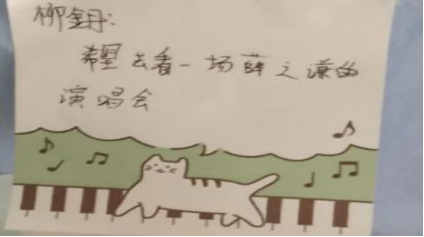 柳钥:
希望去看一场薛之谦的
演唱会